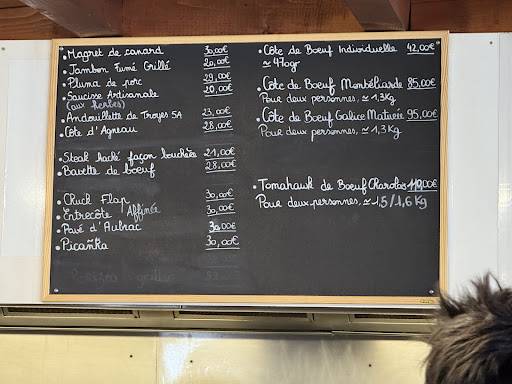 • Magret de canard 30,00€
• Jambon Fumé Grillé 20,00€
• Pluma de porc 29,00€
• Saucisse Artisanale 20,00€
(aux herbes)
• Andouillette de Troyes 5A 23,00€
• Côte d'Agneau 28,00€
• Steak haché façon bouchère 21,00€
• Bavette de boeuf 28,00€
• Chuck Flap 30,00€
• Entrecôte Affinée 30,00€
• Pavé d'Aubrac 30,00€
• Picanha 30,00€
• Côte de Boeuf Individuelle 42,00€
≃ 470gr
• Côte de Boeuf Monbéliarde 85,00€
Pour deux personnes, ≃ 1,3Kg
• Côte de Boeuf Galice Maturée 95,00€
Pour deux personnes, ≃ 1,3Kg
• Tomahawk de Boeuf Charolais 110,00€
Pour deux personnes, ≃ 1,5/1,6 Kg